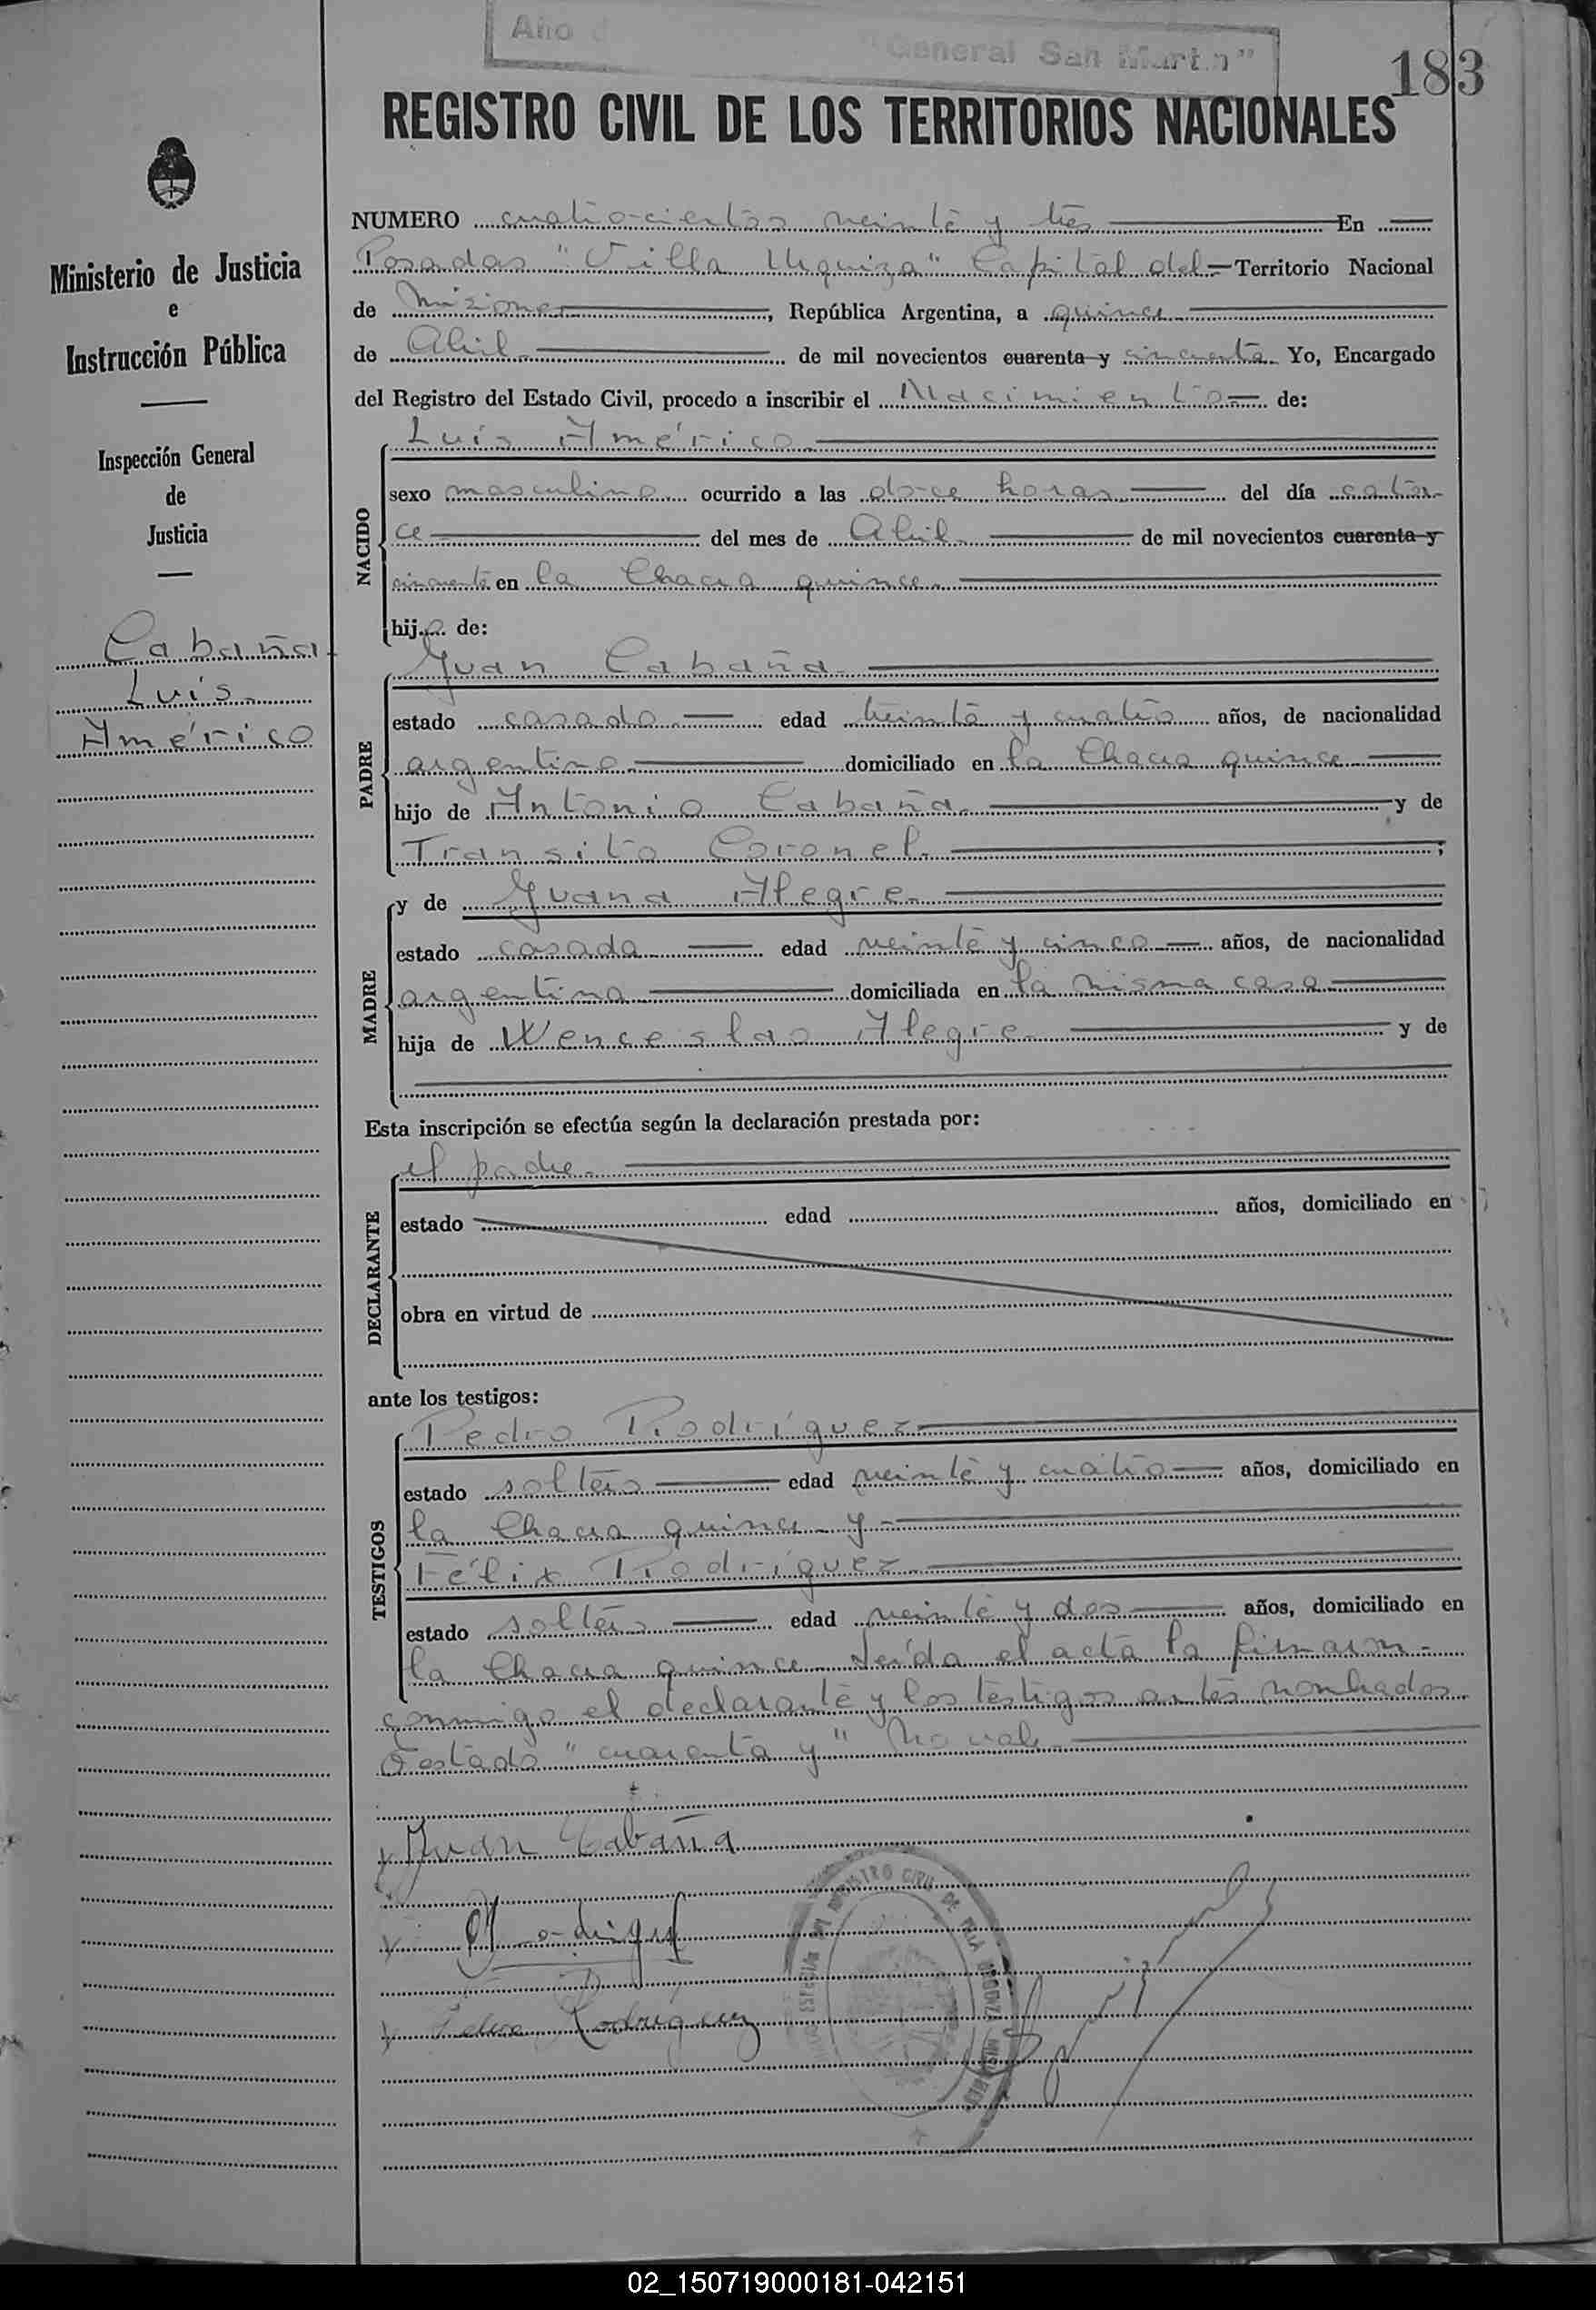 Año d "General San Martin"
183
REGISTRO CIVIL DE LOS TERRITORIOS NACIONALES
Ministerio de Justicia
e
Instrucción Pública
Inspección General
de
Justicia
Cabaña
Luis
Américo
NUMERO cuatrocientos veinte y tres En
Posadas "Villa Urquiza" Capital del Territorio Nacional
de Misiones, República Argentina, a quince
de Abril de mil novecientos cuarenta y cincuenta Yo, Encargado
del Registro del Estado Civil, procedo a inscribir el Nacimiento de:
NACIDO
Luis Américo
sexo masculino ocurrido a las doce horas del día cator-
ce del mes de Abril de mil novecientos cuarenta y
cincuenta en la Chacra quince
hijo de:
PADRE
Juan Cabaña
estado casado edad treinta y cuatro años, de nacionalidad
argentino domiciliado en la Chacra quince
hijo de Antonio Cabaña y de
Transito Coronel ;
MADRE
y de Juana Alegre
estado casada edad veinte y cinco años, de nacionalidad
argentina domiciliada en la misma casa
hija de Wenceslao Alegre y de
Esta inscripción se efectúa según la declaración prestada por:
DECLARANTE
el padre
estado edad años, domiciliado en
obra en virtud de
ante los testigos:
TESTIGOS
Pedro Rodríguez
estado soltero edad veinte y cuatro años, domiciliado en
la Chacra quince y
Félix Rodríguez
estado soltero edad veinte y dos años, domiciliado en
la Chacra quince Leída el acta la firmaron
conmigo el declarante y los testigos antes nombrados
Testado "cuarenta y" No vale
Juan Cabaña
Rodriguez
Rodriguez
REGISTRO CIVIL DE VILLA URQUIZA MISIONES
02_150719000181-042151